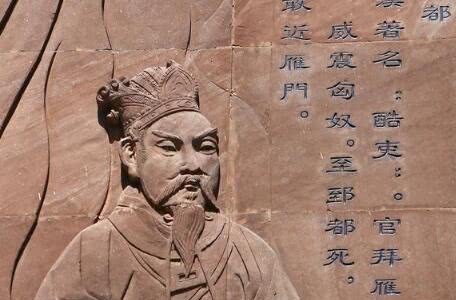 都
漢著名“酷吏”。官拜雁
威震匈奴。至郅都死。
敢近雁門。